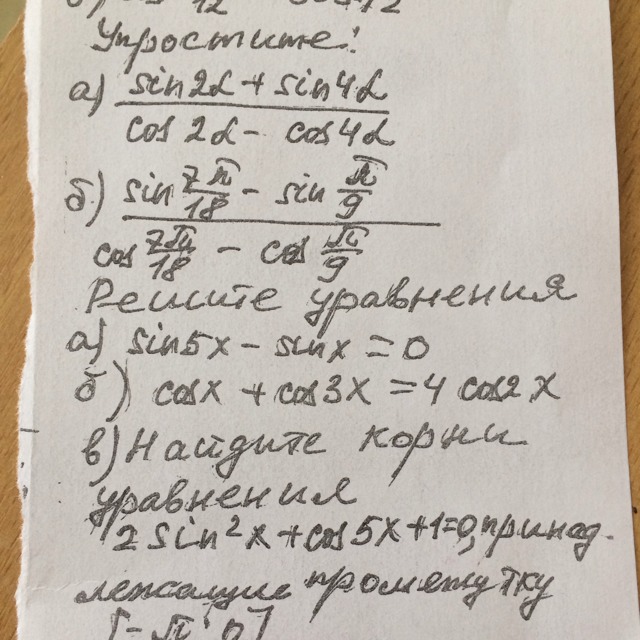 Упростите:
а) sin2α + sin4α
cos2α - cos4α
б) sin 7π/18 - sin π/9
cos 7π/18 - cos π/9
Решите уравнения
а) sin5x - sinx = 0
б) cosx + cos3x = 4 cos2x
в) Найдите корни
уравнения
2 sin²x + cos5x + 1=0, принад-
лежащие промежутку
[-π; 0]